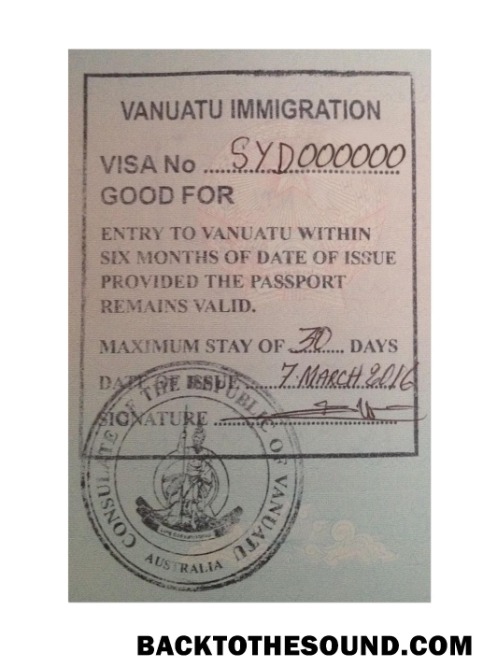 VANUATU IMMIGRATION
VISA No ..... SYD000000
GOOD FOR
ENTRY TO VANUATU WITHIN
SIX MONTHS OF DATE OF ISSUE
PROVIDED THE PASSPORT
REMAINS VALID.
MAXIMUM STAY OF 30 DAYS
DATE OF ISSUE ..... 7 MARCH 2016
SIGNATURE .....
CONSULATE OF THE REPUBLIC OF VANUATU
AUSTRALIA
BACKTOTHESOUND.COM